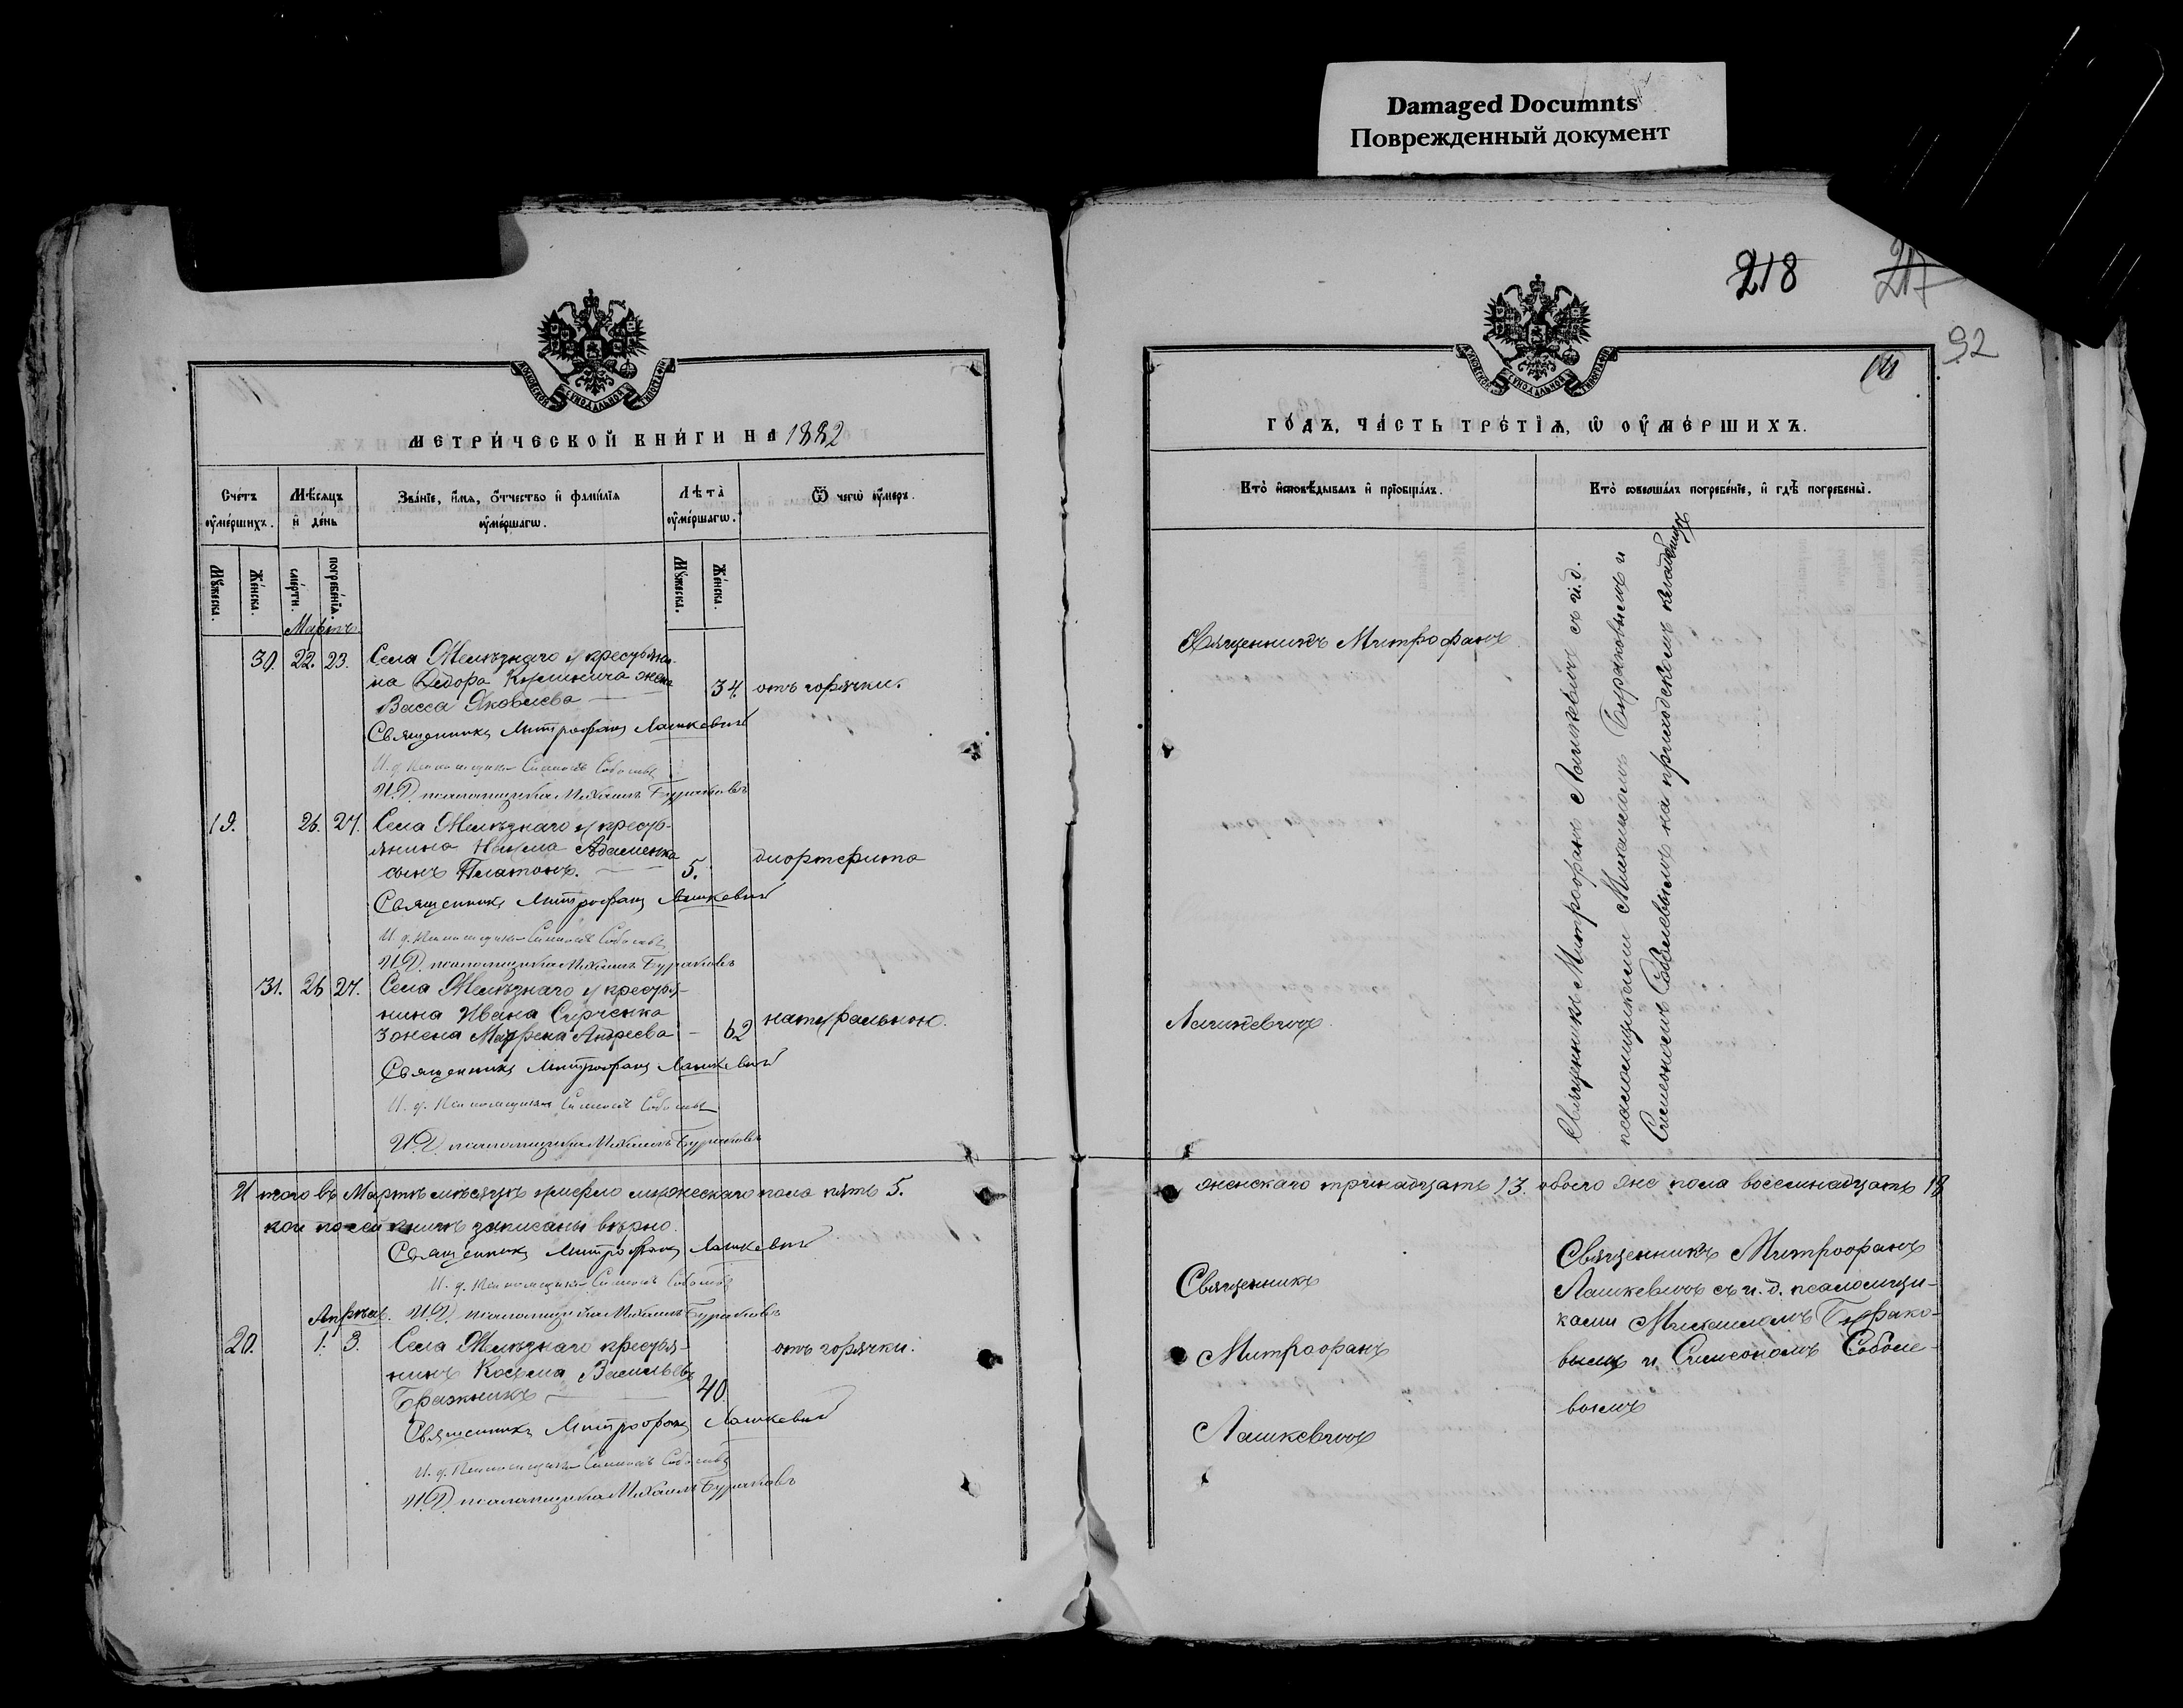 Damaged Documnts
Поврежденный документ
МЕТРИЧЕСКОЙ КНИГИ НА 1882
Счетъ оумершихъ.
Мѣсяцъ и день
Званіе, имя, отчество и фамилія оумершагѡ.
Лѣта оумершагѡ.
Ѿ чегѡ оумеръ.
Мужеска.
Женска.
смерти.
погребенія
Мужеска.
Женска.
Мартъ
30. 22. 23. Села Желѣзнаго крестьяни-
на Ѳедора жена
Васса Яковлева 34. отъ горячки.
Священникъ Митрофанъ Лашкевичъ
И. д. Псаломщика Симеонъ Соболевъ
И.Д. псаломщика Михаилъ Бураковъ
19. 26. 27. Села Желѣзнаго кресть-
янина Наума Адаменка
сынъ Платонъ. 5. дифтерита
Священникъ Митрофанъ Лашкевичъ
И. д. Псаломщика Симеонъ Соболевъ
И.Д. псаломщика Михаилъ Бураковъ
31. 26 27. Села Желѣзнаго крестья-
нина Ивана Сирченка
жена Марфа Андреева 62 натуральною.
Священникъ Митрофанъ Лашкевичъ
И. д. Псаломщика Симеонъ Соболевъ
И.Д. псаломщика Михаилъ Бураковъ
Итого въ Мартѣ мѣсяцѣ умерло мужескаго пола пять 5.
кои по сей книгѣ записаны вѣрно.
Священникъ Митрофанъ Лашкевичъ
И. д. Псаломщика Симеонъ Соболевъ
Апрѣль. И.Д. псаломщика Михаилъ Бураковъ
20. 1. 3. Села Желѣзнаго крестья- отъ горячки.
нинъ Косьма Васильевъ
Бражникъ 40.
Священникъ Митрофанъ Лашкевичъ
И. д. Псаломщика Симеонъ Соболевъ
И.Д. псаломщика Михаилъ Бураковъ
218
217
92
ГОДЪ, ЧАСТЬ ТРЕТІѦ, Ѡ ОУМЕРШИХЪ.
Кто исповѣдывалъ и пріобщалъ.
Кто совершалъ погребеніе, и гдѣ погребены.
Священникъ Митрофанъ
Лашкевичъ
Священникъ Митрофанъ Лашкевичъ съ и.д.
псаломщиками Михаиломъ Бураковымъ и
Симеономъ Соболевымъ на приходскомъ кладбищѣ
женскаго тринадцать 13. обоего же пола восемнадцать 18
Священникъ
Митрофанъ
Лашкевичъ
Священникъ Митрофанъ
Лашкевичъ съ и. д. псаломщи-
ками Михаиломъ Бурако-
вымъ и Симеономъ Соболе-
вымъ